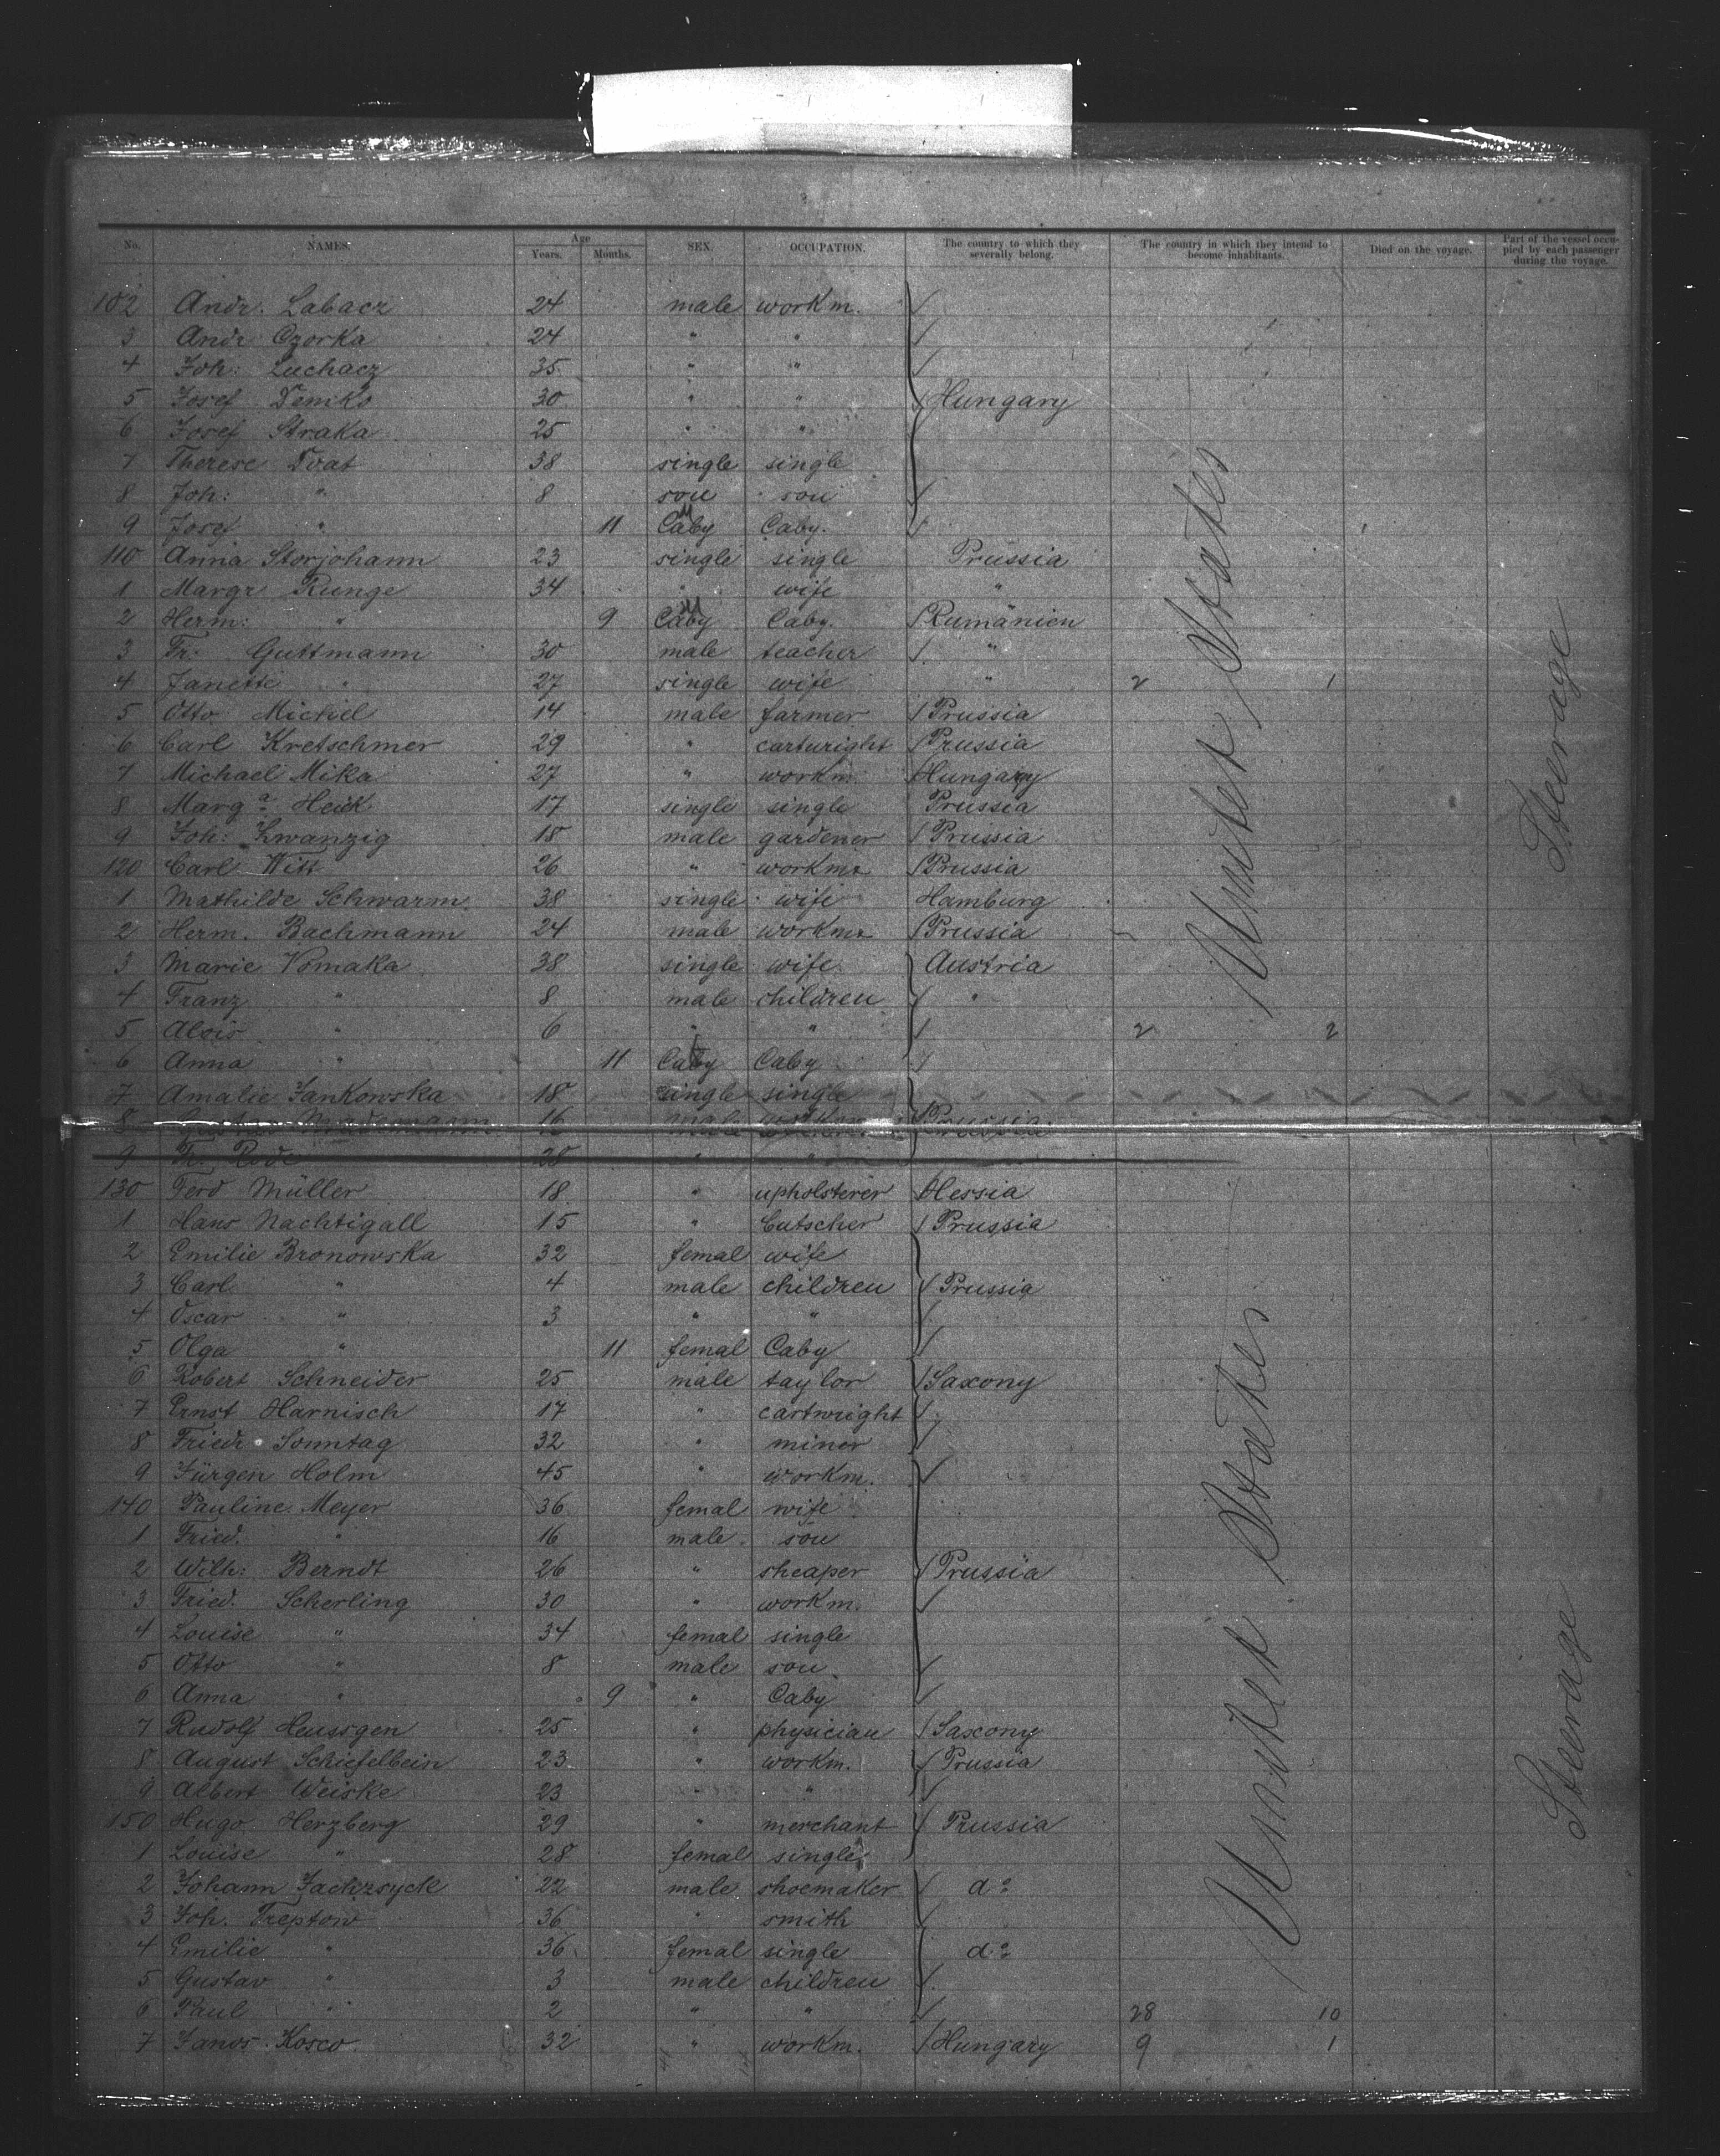 No. NAMES. Age Years. Months. SEX. OCCUPATION. The country to which they severally belong. The country in which they intend to become inhabitants. Died on the voyage. Part of the vessel occupied by each passenger during the voyage.
102 Andr. Labacz 24 male workm.
3 Andr Ozorka 24 " "
4 Joh: Luchacz 35 " "
5 Josef Demko 30 " " Hungary
6 Josef Straka 25 " "
7 Therese Dvat 38 single single
8 Joh: " 8 son son
9 Josef " 11 Caby Caby.
110 Anna Storjohann 23 single single Prussia
1 Margr Runge 34 " wife "
2 Herm: " 9 Caby Caby. Rumänien
3 Fr: Guttmann 30 male teacher "
4 Janette " 27 single wife " 2 1
5 Otto Michiel 14 male farmer Prussia
6 Carl Kretschmer 29 " cartwright Prussia
7 Michael Mika 27 " workm. Hungary
8 Marga Heick 17 single single Prussia
9 Joh: Zwanzig 18 male gardener Prussia
120 Carl Witt 26 " workm. Prussia
1 Mathilde Schwarm 38 single wife Hamburg
2 Herm. Bachmann 24 male workm. Prussia
3 Marie Vomaka 38 single wife Austria
4 Franz " 8 male children "
5 Alois " 6 " " 2 2
6 Anna " 11 Caby Caby
7 Amalie Jankowska 18 single single
8 16 male workm. Prussia
9 Fr. Rode 28 " "
United States
Steerage
130 Ferd Müller 18 " upholsterer Hessia
1 Hans Nachtigall 15 " butscher Prussia
2 Emilie Bronowska 32 femal wife
3 Carl " 4 male children Prussia
4 Oscar " 3 " "
5 Olga " 11 femal Caby
6 Robert Schneider 25 male taylor Saxony
7 Ernst Harnisch 17 " cartwright
8 Friedr Sonntag 32 " miner
9 Jürgen Holm 45 " workm.
140 Pauline Meyer 36 femal wife
1 Fried. " 16 male son
2 Wilh: Berndt 26 " sheaper Prussia
3 Fried. Scherling 30 " workm.
4 Louise " 34 femal single
5 Otto " 8 male son
6 Anna " 9 " Caby
7 Rudolf Heussgen 25 " physician Saxony
8 August Schiefelbein 23 " workm. Prussia
9 Albert Weiske 23 " "
150 Hugo Herzberg 29 " merchant Prussia
1 Louise " 28 femal single
2 Johann Jachzsyck 22 male shoemaker do
3 Joh. Treptow 36 " smith
4 Emilie " 36 femal single do
5 Gustav " 3 male children
6 Paul " 2 " " 28 10
7 Janos Kosco 32 " workm. Hungary 9 1
United States
Steerage